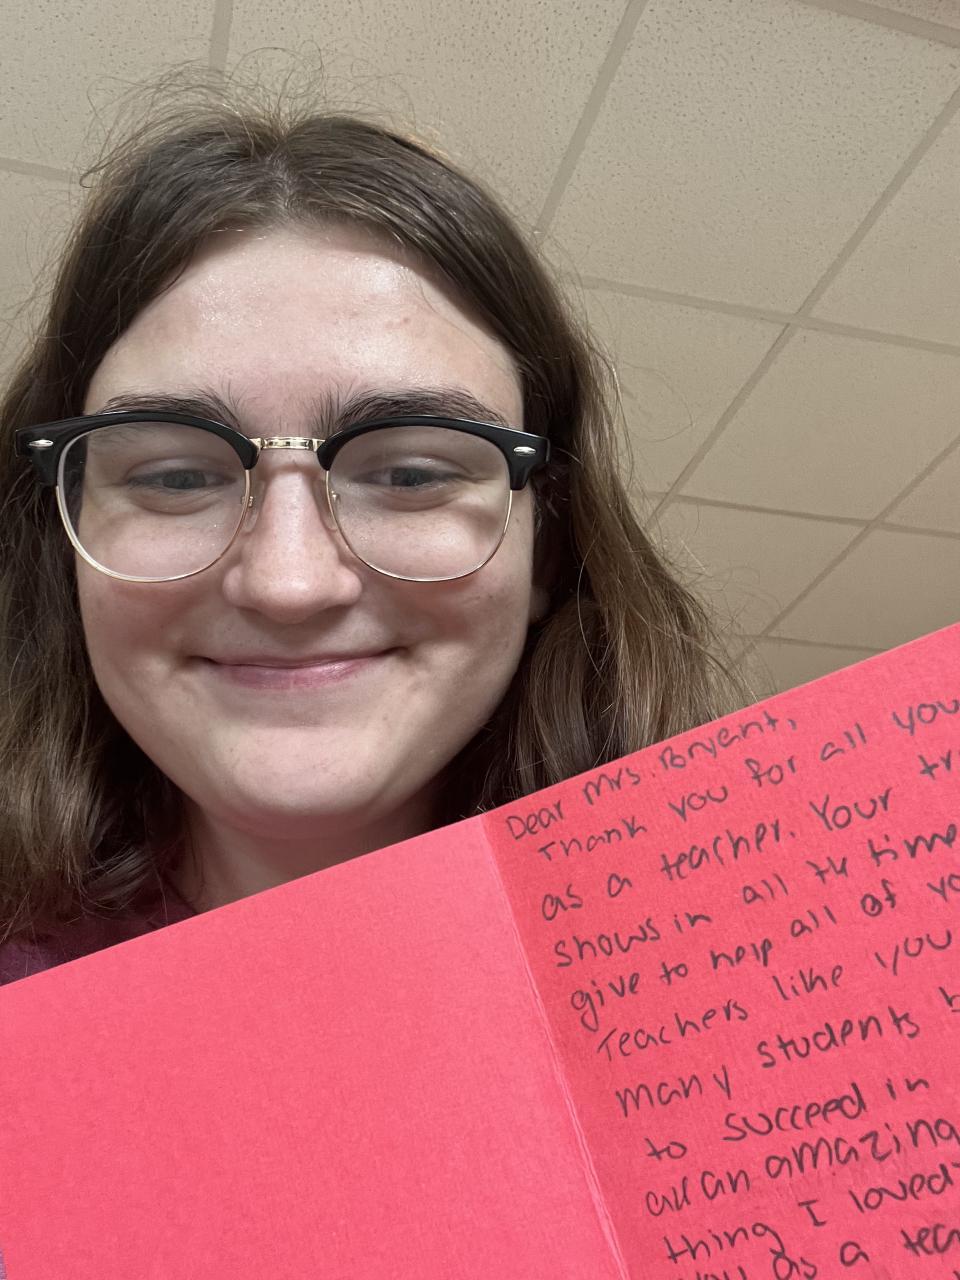 Dear Mrs. Bryant,
Thank you for all you
as a teacher. Your
shows in all the time
give to help all of
Teachers like you
many students
to succeed in
an amazing
thing I loved
you as a